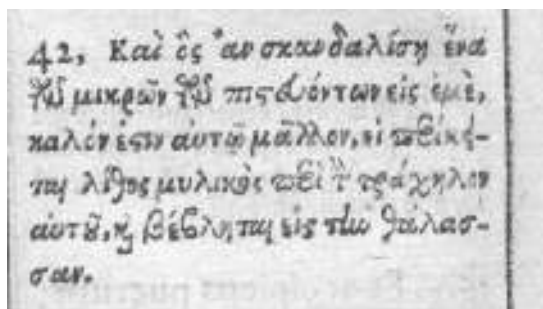 42, Καὶ ὃς ἂν σκανδαλίσῃ ἕνα
τῶν μικρῶν τῶν πιστευόντων εἰς ἐμὲ,
καλόν ἐστιν αὐτῷ μᾶλλον, εἰ περίκει-
ται λίθος μυλικὸς περὶ τὸν τράχηλον
αὐτοῦ, καὶ βέβληται εἰς τὴν θάλασ-
σαν.